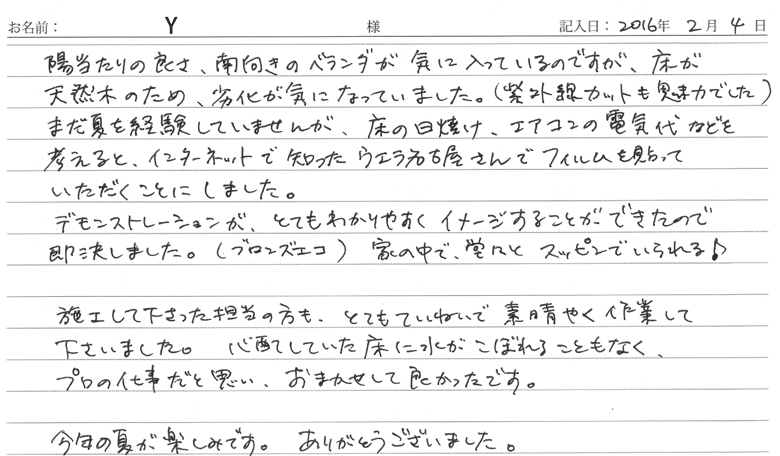 お名前： Y 様 記入日：2016年 2月 4日
陽当たりの良さ、南向きのベランダが気に入っているのですが、床が
天然木のため、劣化が気になっていました。（紫外線カットも魅力でした）
まだ夏を経験していませんが、床の日焼け、エアコンの電気代などを
考えると、インターネットで知ったウエラ名古屋さんでフィルムを貼って
いただくことにしました。
デモンストレーションが、とてもわかりやすくイメージすることができたので
即決しました。（ブロンズエコ） 家の中で、堂々とスッピンでいられる♪
施工して下さった担当の方も、とてもていねいで素晴やく作業して
下さいました。 心配していた床に水がこぼれることもなく、
プロの仕事だと思い、おまかせして良かったです。
今年の夏が楽しみです。 ありがとうございました。